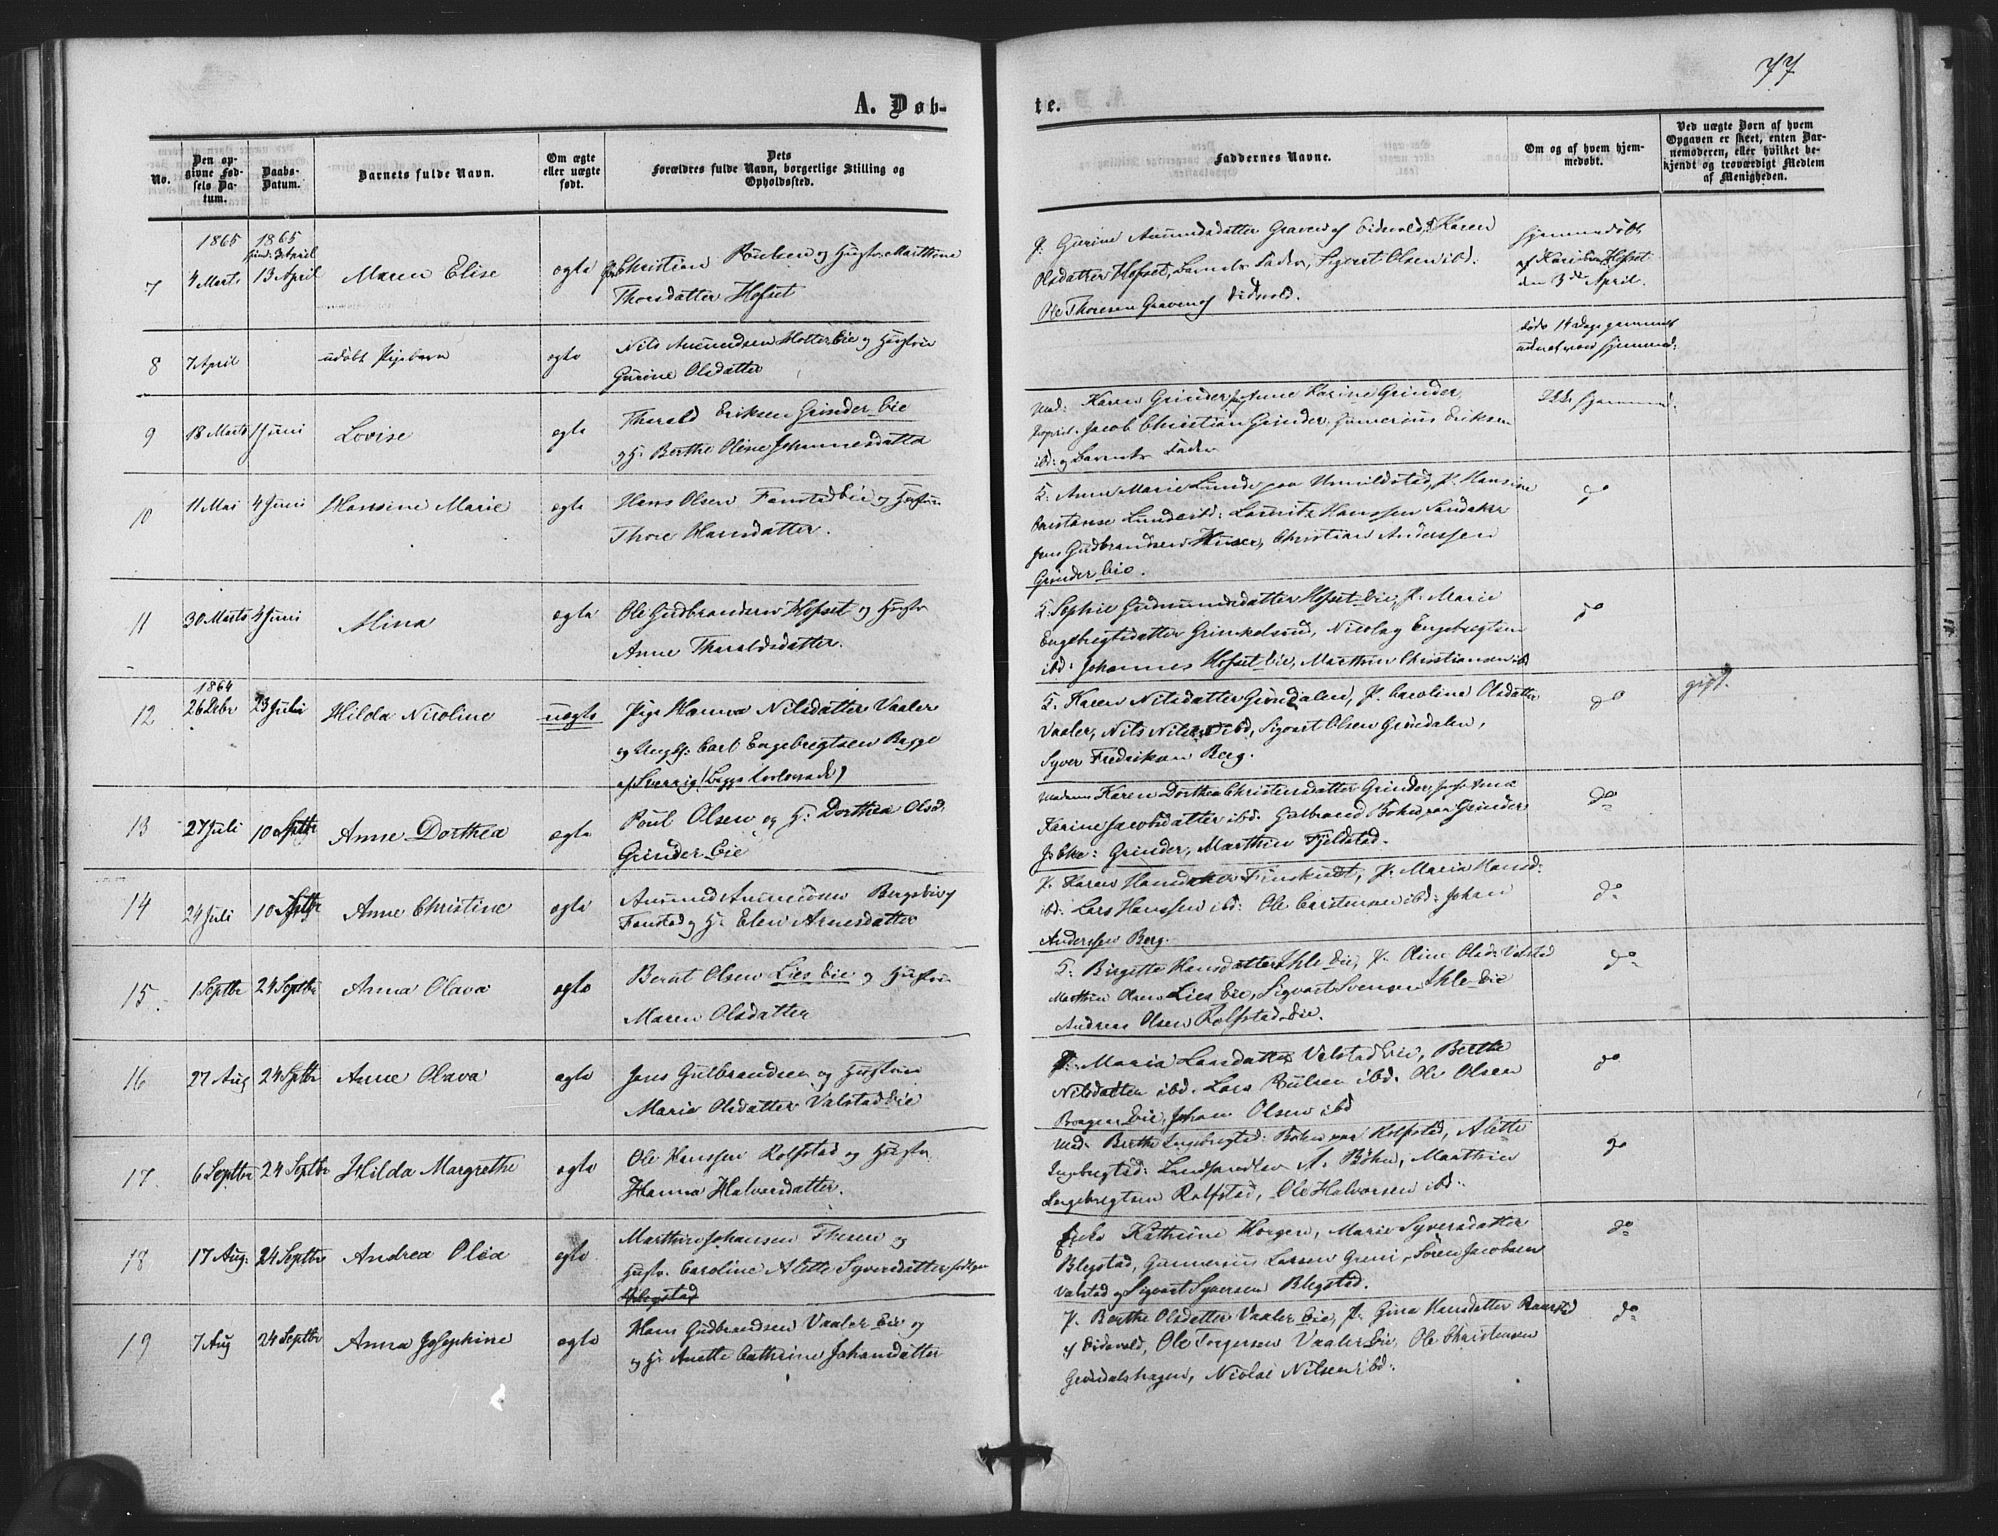 77
A. Døb-
te.
No.
Den op-
givne Fød-
sels Da-
tum.
Daabs-
Datum.
Barnets fulde Navn.
Om ægte
eller uægte
født.
Dets
Forældres fulde Navn, borgerlige Stilling og
Opholdssted.
Faddernes Navne.
Om og af hvem hjem-
medøbt.
Ved uægte Børn af hvem
Opgaven er skeet, enten Bar-
nemoderen, eller hvilket be-
kjendt og troværdigt Medlem
af Menigheden.
1865
1865
3 April
7
4 Marts
13 April
Maren Elise
ægte
Christian Paulsen og Hustr. Marthine
Thorsdatter Hofset
P. Gurine Amundsdatter Graven af Eidsvold, Karen
Olsdatter Hofset, Barnets Fader, Sigvart Olsen ibd:
Ole Thoresen Graven af Eidsvold.
Hjemmedøbt
af Kari Hofset
den 3de April.
8
7 April
udøbt Pigebarn
ægte
Nils Amundsen Holter Eie og Hustru
Gurine Olsdatter
døde 14 Dage gammelt
9
18 Marts
1 Juni
Lovise
ægte
Tharald Eriksen Grinder Eie
og H: Berthe Oline Johannesdatter
Mad: Karen Grinder, Anne Karine Grinder,
Jacob Christian Grinder, Gunerius Eriksen
ibd: og Barnets Fader
10
11 Mai
4 Juni
Hansine Marie
ægte
Hans Olsen Fanstad Eie og Hustru
Thore Hansdatter.
G. Anne Marie Lunde paa P. Hansine
Constanse Lunde ibd: Lauritz Hanssen Sandaker
Jens Gudbrandsen Huser, Christian Anderssen
Grinder Eie.
do
11
30 Marts
4 Juni
Mina
ægte
Ole Gudbrandsen Hofset og Hustr
Anne Tharaldsdatter.
G. Sophie Gudmundsdatter Hofset Eie, P. Marie
Engebregtsdatter Grinkelsrud, Nicolay Engebregtsen
ibd: Johannes Hofset Eie, Marthin Christiansen ibd
do
1864
12
26 Febr
23 Juli
Hilda Nicoline
uægte
Pige Hanna Nilsdatter Vaaler
og Ungk: Carl Engebregtsen Bagge
af Sverrig
G. Karen Nilsdatter Grindalen, P. Caroline Olsdatter
Vaaler, Nils Nilsen ibd, Sigvart Olsen Grindalen,
Syver Fredriksen Berg.
do
gift.
13
27 Juli
10 Septbr
Anne Dorthea
ægte
Poul Olsen og H: Dorthea Olsd.
Grinder Eie
Madame Karen Dorthea Christensdatter Grinder,
Karine Jacobsdatter ibd. Gulbrand Bøhn paa Grinder
Grinder, Marthin Fjeldstad.
do
14
24 Juli
10 Septbr
Anne Christine
ægte
Amund Amundsen Bergs
Fanstad og H: Elen Arnesdatter
P. Karen Hansdatter P. Maria Hansd:
ibd: Lars Hanssen ibd: Ole Carstensen ibd: Johan
Anderssen Berg.
do
15
1 Septbr
24 Septbr
Anna Olava
ægte
Bernt Olsen Lies Eie og Hustru
Maren Olsdatter
G: Birgitte Hansdatter Ihle Eie, P. Oline Olsd: Valstad
Marthin Olsen Lies Eie, Sigvart Svensen Ihle Eie
Andreas Olsen Rolfstad Eie.
do
16
27 Aug
24 Septbr
Anne Olava
ægte
Jens Gulbrandsen og Hustru
Marie Olsdatter Valstad Eie
P. Maria Larsdatter Valstad Eie, Berthe
Nilsdatter ibd. Lars Poulsen ibd. Ole Olsen
Eie, Johan Olsen ibd
do
17
6 Septbr
24 Septbr
Hilda Margrethe
ægte
Ole Hanssen Rolfstad og Hustr.
Hanna Halvorsdatter.
Mad. Berthe Ingebrigtsd: Bøhn paa Rolfstad, Alette
Ingebrigtsd: A. Bøhn, Marthin
Ingebrigtsen Rolfstad, Ole Halvorsen ibd.
do
18
17 Aug.
24 Septbr
Andrea Olea
ægte
Marthin Johansen og
Hustr. Caroline Alette Syversdatter
Blegstad
Kathrine Horgen, Marie Syversdatter
Blegstad, Gunnerius Larsen Greni, Søren Jacobsen
Valstad og Sigvart Syversen Blegstad.
do
19
7 Aug
24 Septbr
Anna Josephine
ægte
Hans Gudbrandsen Vaaler Eie og
og H: Anette Cathrine Johansdatter
P. Berthe Olsdatter Vaaler Eie, P. Gina Hansdatter
af Eidsvold, Ole Torgersen Vaaler Eie, Ole Christensen
Grindalshagen, Nicolai Nilsen ibd:
do